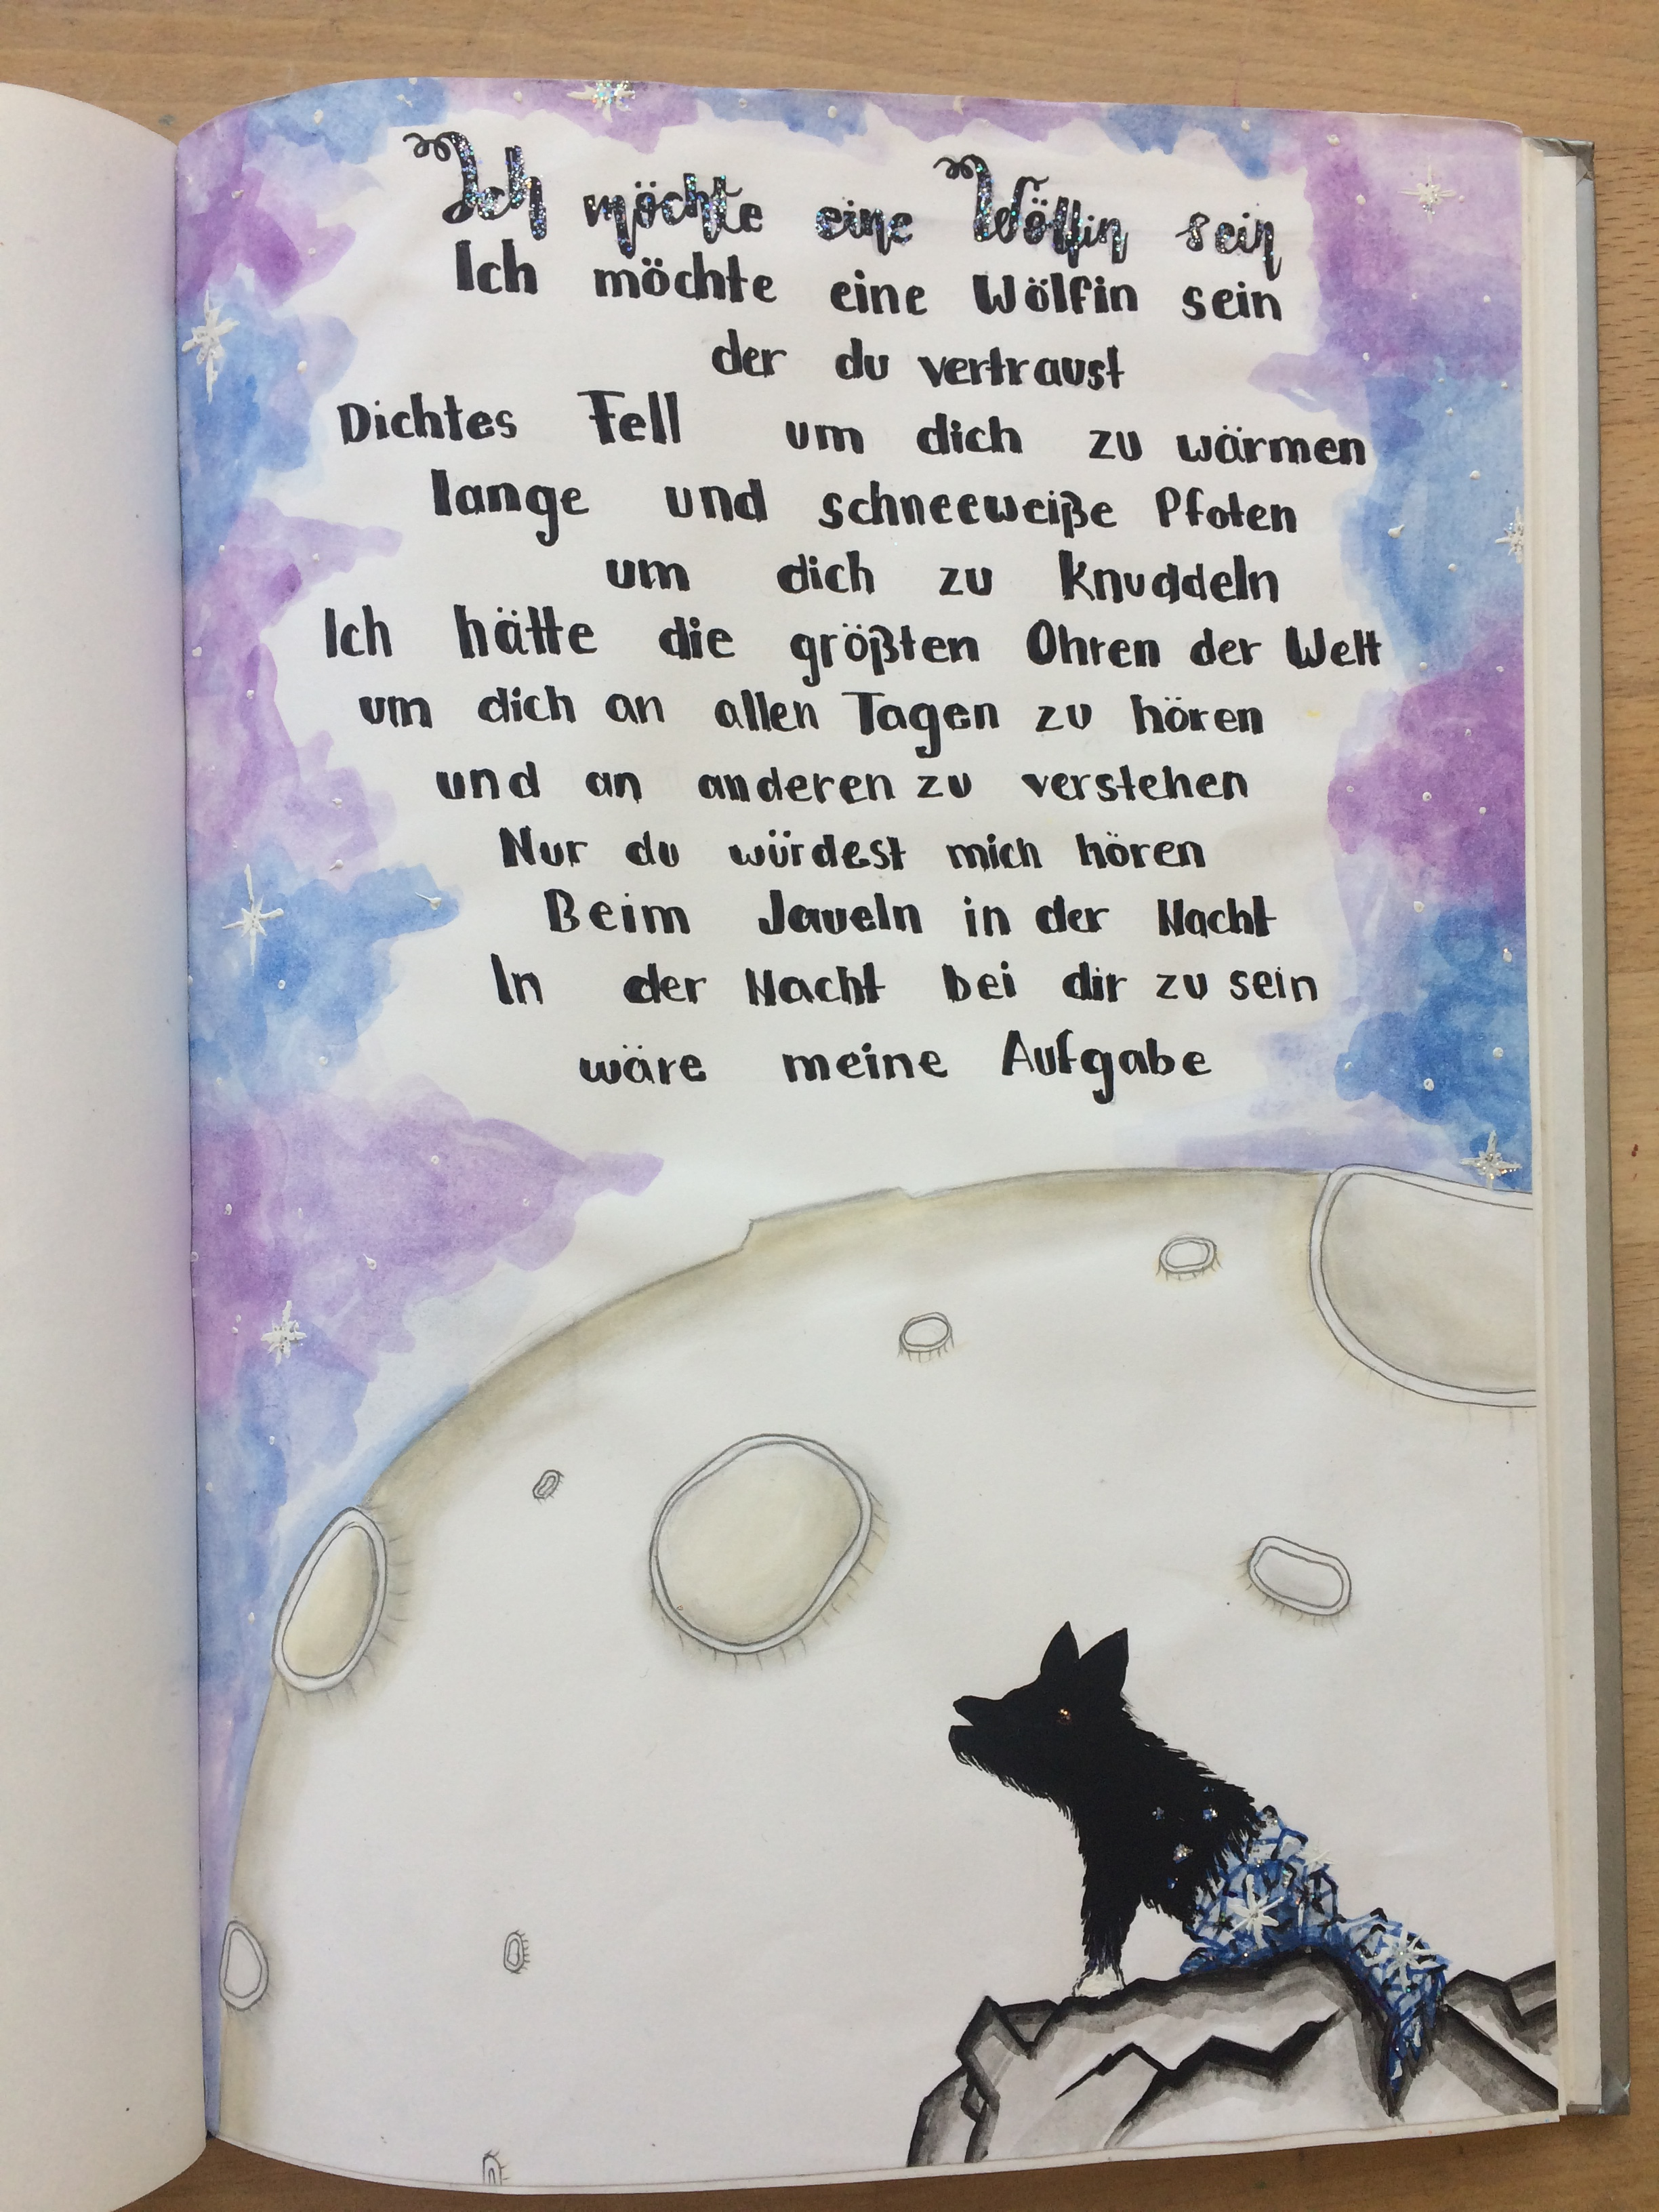 Ich möchte eine Wölfin sein
Ich möchte eine Wölfin sein
der du vertraust
Dichtes Fell um dich zu wärmen
lange und schneeweiße Pfoten
um dich zu knuddeln
Ich hätte die größten Ohren der Welt
um dich an allen Tagen zu hören
und an anderen zu verstehen
Nur du würdest mich hören
Beim Jaueln in der Nacht
In der Nacht bei dir zu sein
wäre meine Aufgabe